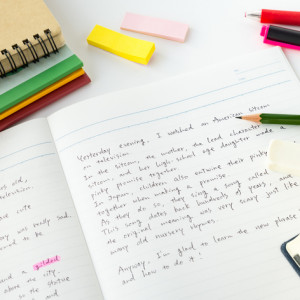 Yesterday evening, I watched an American sitcom
on television.
In the sitcom, the mother, the lead character
sitcom, and her high school age daughter made a
pinky promise together.
In Japan, children also entwine their pinky
together when making a promise.
As they do so, they sing a song called
This song dates back hundreds of years,
the original meaning was very scary just like
many old nursery rhymes.
Anyway, I'm glad to learn the new phrase
and how to do it!
and a gilded
above the city.
the statue
and